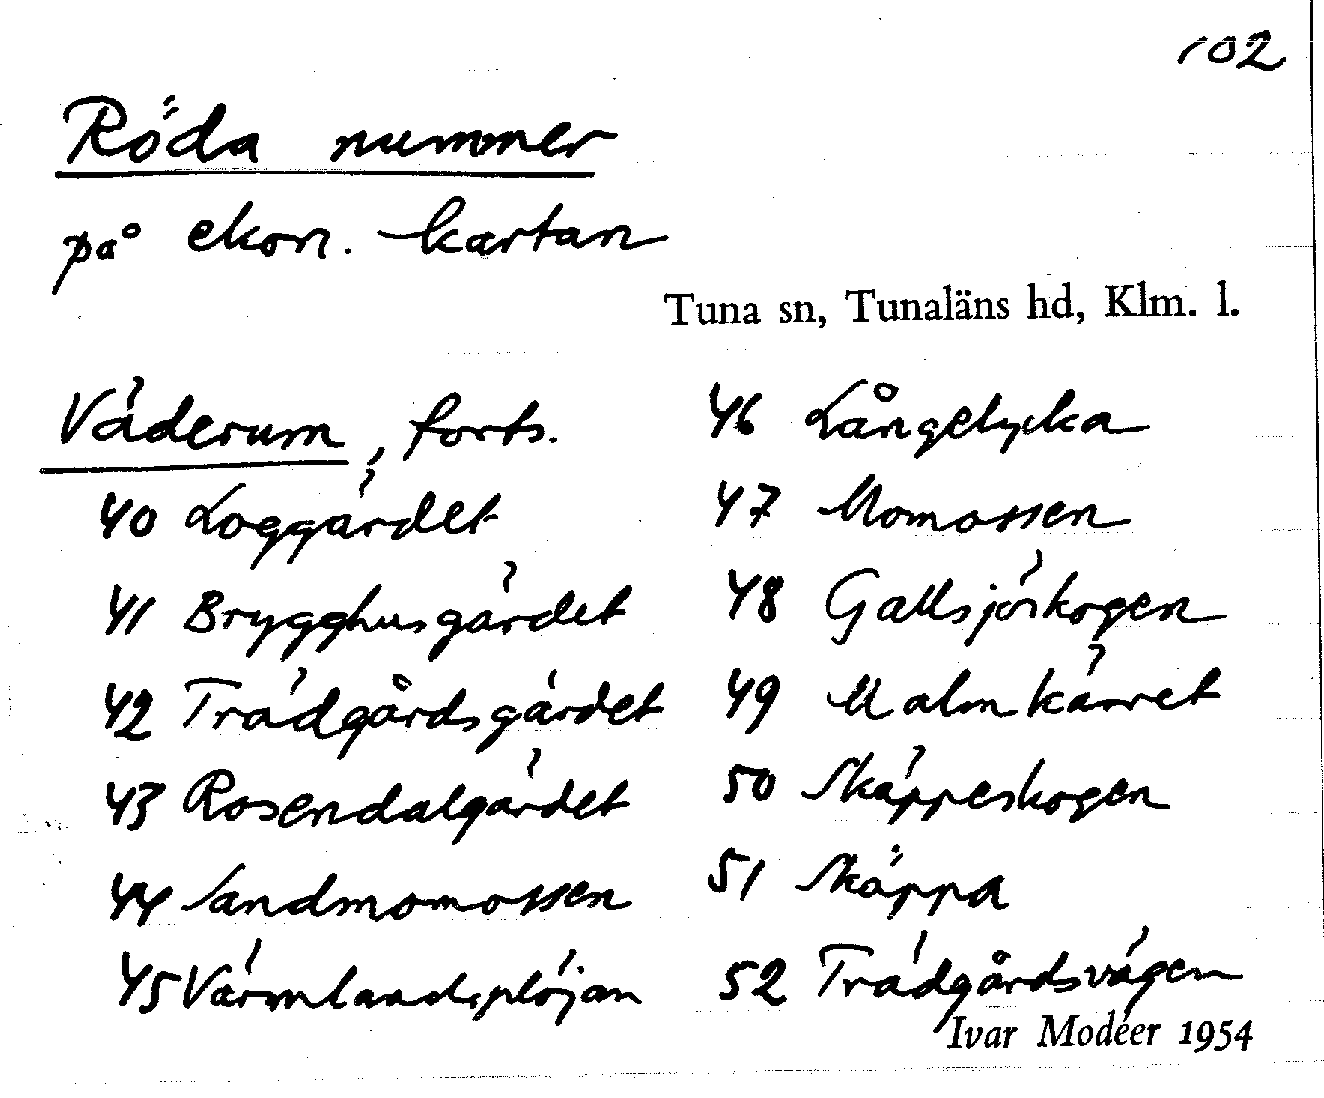 102
Röda nummer
på ekon. kartan
Tuna sn, Tunaläns hd, Klm. l.
Väderum, forts.
40 Loggärdet
41 Brygghusgärdet
42 Trädgårdsgärdet
43 Rosendalgärdet
44 Sandmomossen
45 Värmlandsplöjan
46 Långelycka
47 Momossen
48 Gallsjöskogen
49 Malmkärret
50 Skäppeskogen
51 Skäppa
52 Trädgårdsvägen
Ivar Modéer 1954